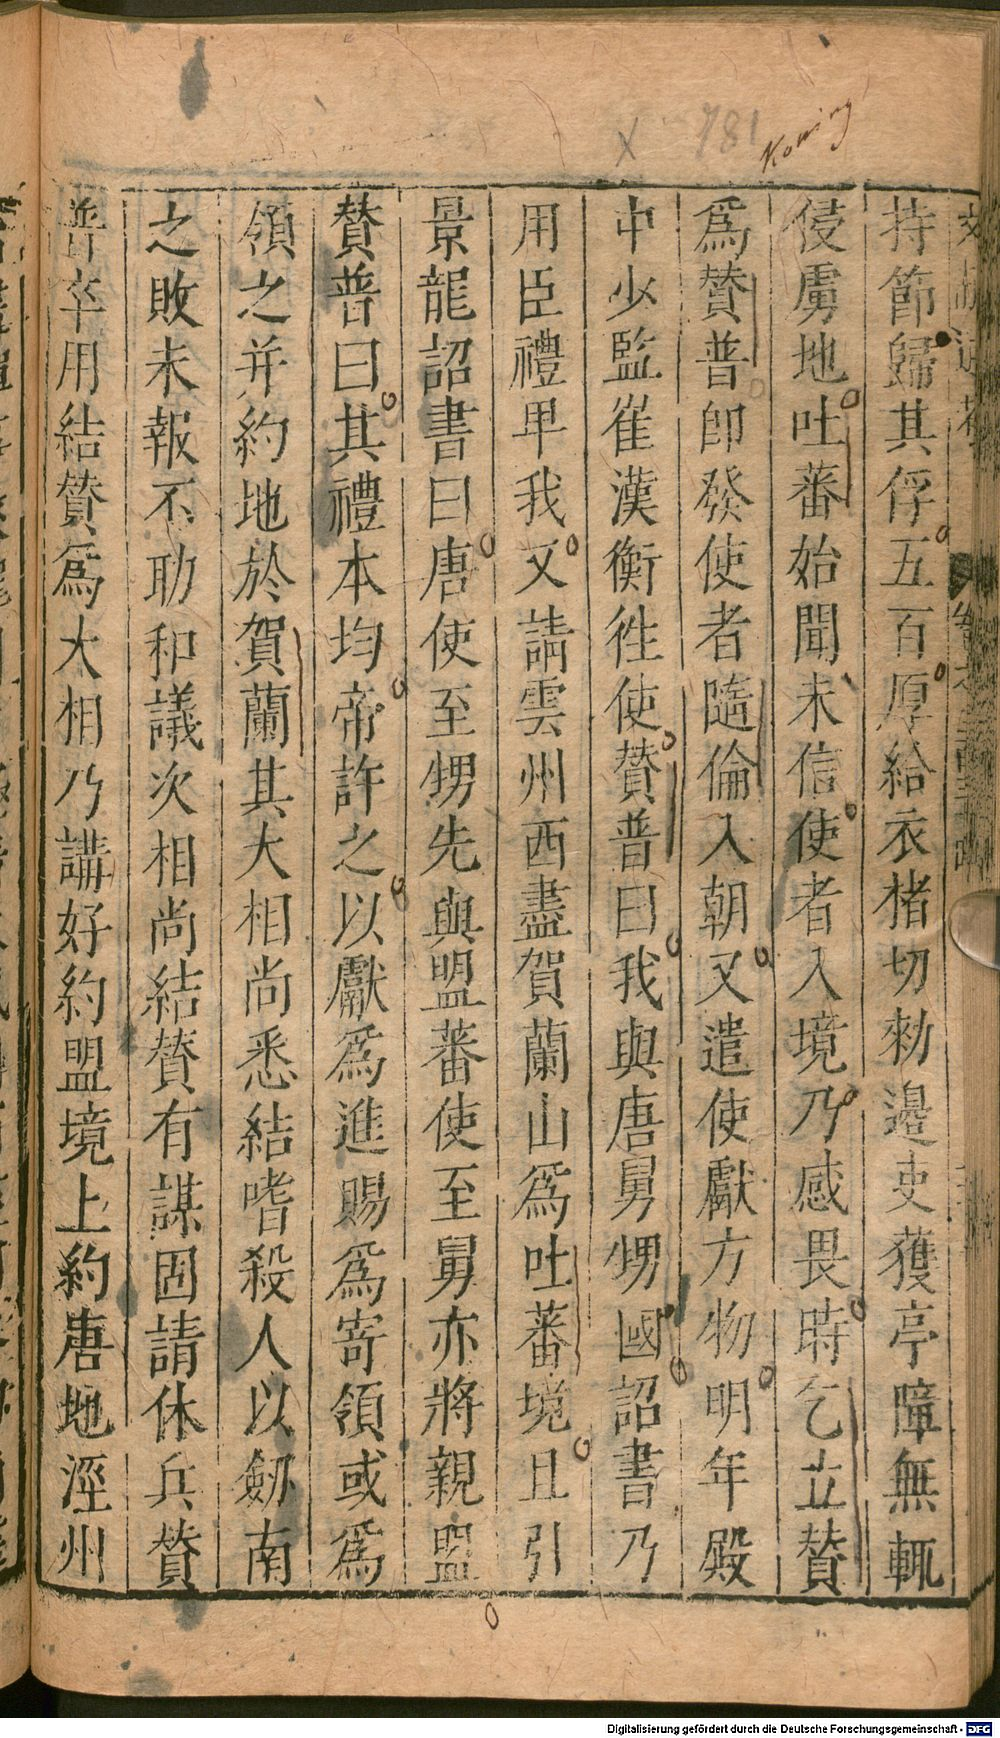 持節歸其俘五百厚給衣楮切勑邊吏獲亭障無輒
侵虜地吐蕃始聞未信使者入境乃感畏時乞立贊
爲贊普卽發使者隨倫入朝又遣使獻方物明年殿
中少監崔漢衡徃使贊普曰我與唐舅甥國詔書乃
用臣禮卑我又請雲州西盡賀蘭山爲吐蕃境且引
景龍詔書曰唐使至甥先與盟蕃使至舅亦將親盟
贊普曰其禮本均帝許之以獻爲進賜爲寄領或爲
領之并約地於賀蘭其大相尚悉結嗜殺人以劒南
之敗未報不助和議次相尚結贊有謀固請休兵贊
普卒用結贊爲大相乃講好約盟境上約唐地涇州
卷之三百三十四
781
Digitalisierung gefördert durch die Deutsche Forschungsgemeinschaft - DFG